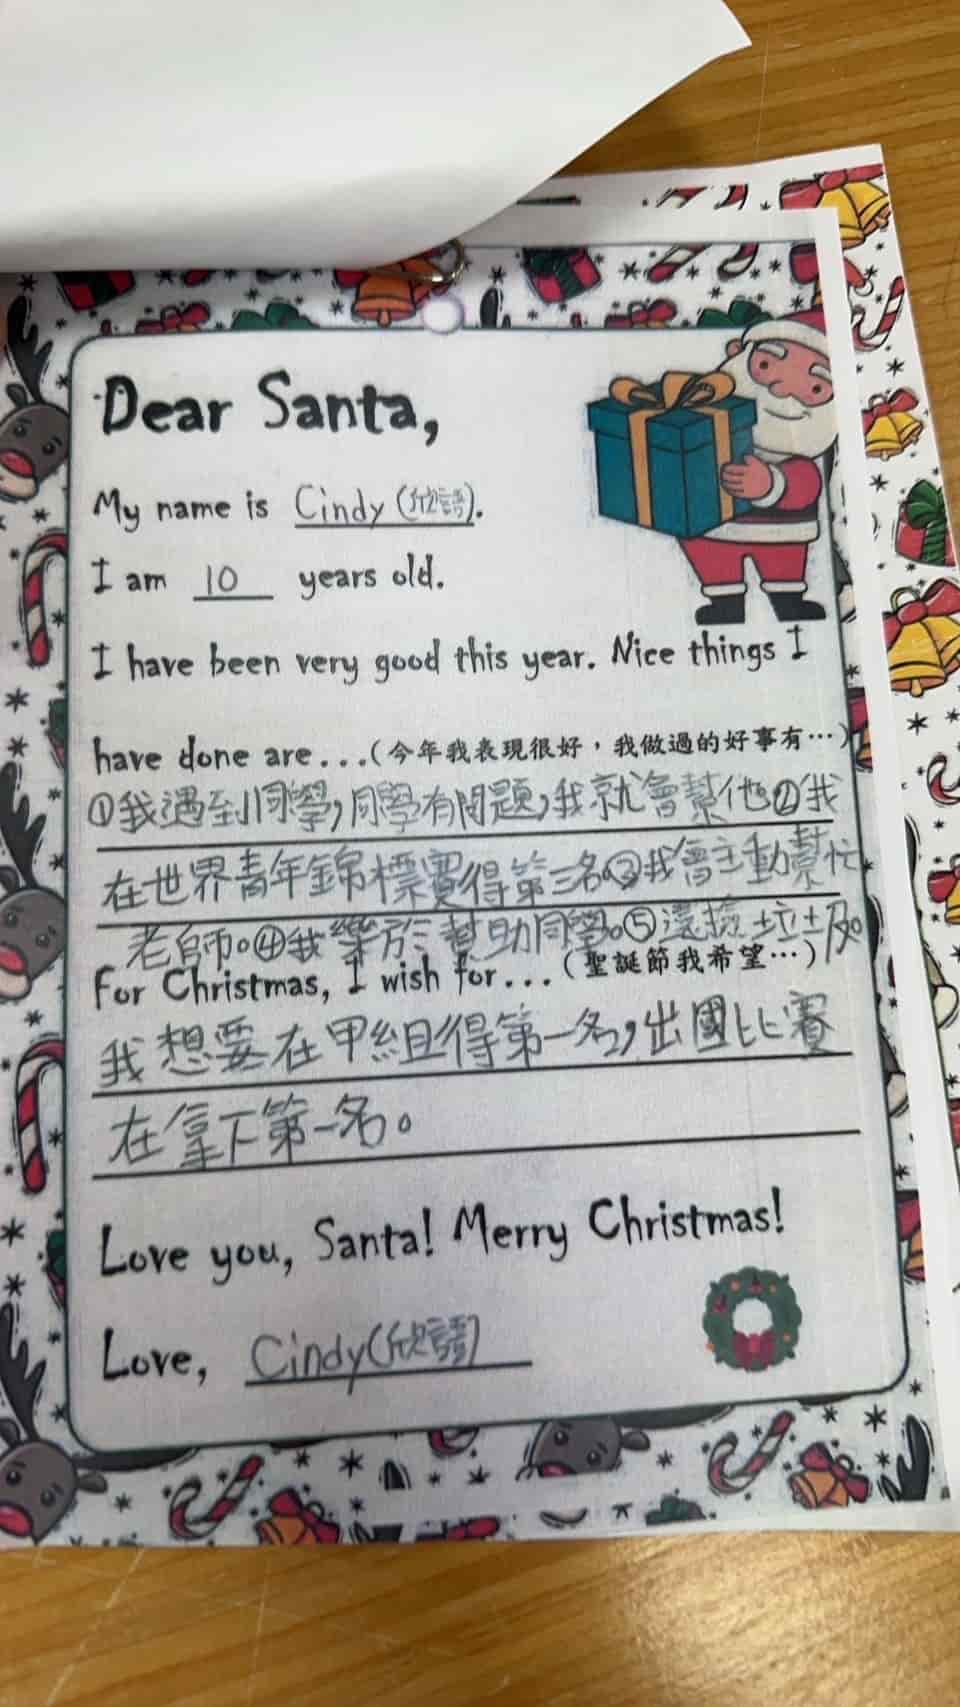 Dear Santa,
My name is Cindy (欣語).
I am 10 years old.
I have been very good this year. Nice things I
have done are...(今年我表現很好，我做過的好事有…)
①我遇到同學，同學有問題，我就會幫他②我
在世界青年錦標賽得第三名③我會主動幫忙
老師。④我樂於幫助同學。⑤還撿垃圾。
For Christmas, I wish for...(聖誕節我希望…)
我想要在甲組得第一名，出國比賽
在拿下第一名。
Love you, Santa! Merry Christmas!
Love, Cindy(欣語)